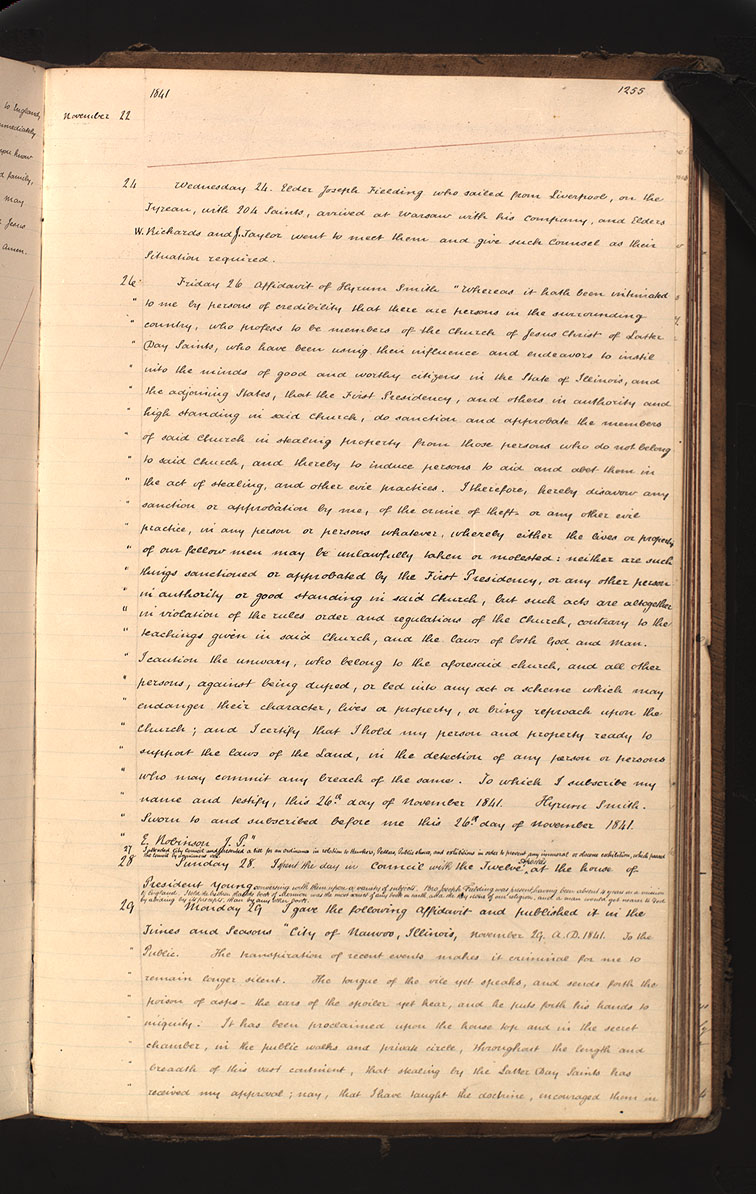 1841
1255
November 22
24 Wednesday 24. Elder Joseph Fielding who sailed from Liverpool, on the
Tyrean, with 204 Saints, arrived at Warsaw with his Company, and Elders
W. Richards and J. Taylor went to meet them and give such Counsel as their
Situation required.
26 Friday 26 Affidavit of Hyrum Smith "Whereas it hath been intimated
" to me by persons of credibility that there are persons in the surrounding
" country, who profess to be members of the Church of Jesus Christ of Latter
" Day Saints, who have been using their influence and endeavors to instil
" into the minds of good and worthy citizens in the State of Illinois, and
" the adjoining States, that the First Presidency, and others in authority and
" high standing in said Church, do sanction and approbate the members
" of said Church in stealing property from those persons who do not belong
" to said Church, and thereby to induce persons to aid and abet them in
" the act of stealing, and other evil practices. I therefore, hereby disavow any
" sanction or approbation by me, of the crime of theft or any other evil
" practice, in any person or persons whatever, whereby either the lives or property
" of our fellow men may be unlawfully taken or molested: neither are such
" things sanctioned or approbated by the First Presidency, or any other person
" in authority or good standing in said Church, but such acts are altogether
" in violation of the rules order and regulations of the Church, contrary to the
" teachings given in said Church, and the laws of both God and Man.
" I caution the unwary, who belong to the aforesaid church, and all other
" persons, against being duped, or led into any act or scheme which may
" endanger their character, lives or property, or bring reproach upon the
" Church; and I certify that I hold my person and property ready to
" support the laws of the Land, in the detection of any person or persons
" who may commit any breach of the same. To which I subscribe my
" name and testify, this 26th day of November 1841. Hyrum Smith.
" Sworn to and subscribed before me this 26th day of november 1841.
" E. Robinson J. P."
27 I attended City Council and presented a bill for an ordinance in relation to Hawkers, Pedlars, Public shows, and exhibitions in order to prevent any immoral or obscene exhibition, which passed
the council by unanimous vote.
28 Sunday 28. I spent the day in Council with the Twelve Apostles at the house of
President Young conversing with them upon a variety of subjects. Bro Joseph Fielding was present having been absent 4 years on a mission
to England. I told the brethren that the book of Mormon was the most correct of any book on earth and the key stone of our religion, and a man would get nearer to God
by abiding by its precepts, than by any other book.
29 Monday 29 I gave the following Affidavit and published it in the
Times and Seasons "City of Nauvoo, Illinois, november 29. A.D. 1841. To the
" Public. The transpiration of recent events makes it criminal for me to
" remain longer silent. The tongue of the vile yet speaks, and sends forth the
" poison of asps - the ears of the spoiler yet hear, and he puts forth his hands to
" iniquity. It has been proclaimed upon the house top and in the secret
" chamber, in the public walks and private circle, throughout the length and
" breadth of this vast continent, that stealing by the Latter Day Saints has
" received my approval; nay, that I have taught the doctrine, encouraged them in
to England
immediately
you know
family,
may
Jesus
Amen.